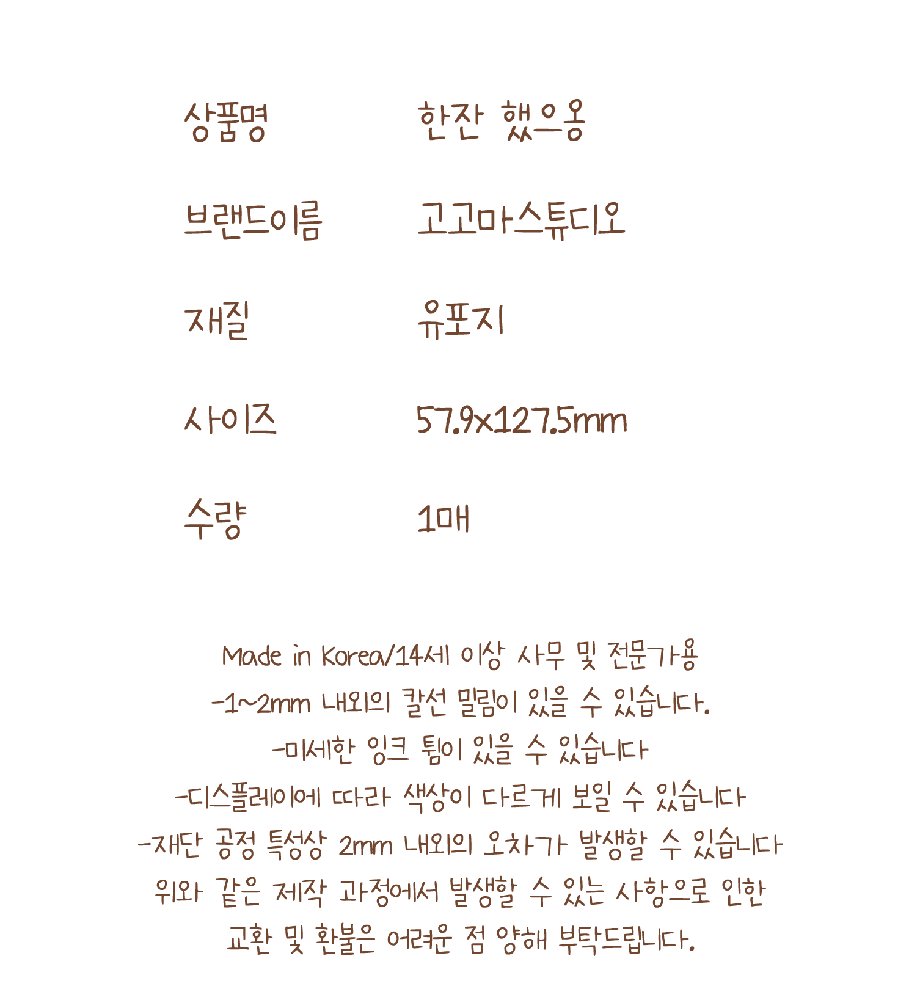 상품명 한잔 했으옹
브랜드이름 고고마스튜디오
재질 유포지
사이즈 57.9x127.5mm
수량 1매
Made in Korea/14세 이상 사무 및 전문가용
-1~2mm 내외의 칼선 밀림이 있을 수 있습니다.
-미세한 잉크 튐이 있을 수 있습니다
-디스플레이에 따라 색상이 다르게 보일 수 있습니다
-재단 공정 특성상 2mm 내외의 오차가 발생할 수 있습니다
위와 같은 제작 과정에서 발생할 수 있는 사항으로 인한
교환 및 환불은 어려운 점 양해 부탁드립니다.